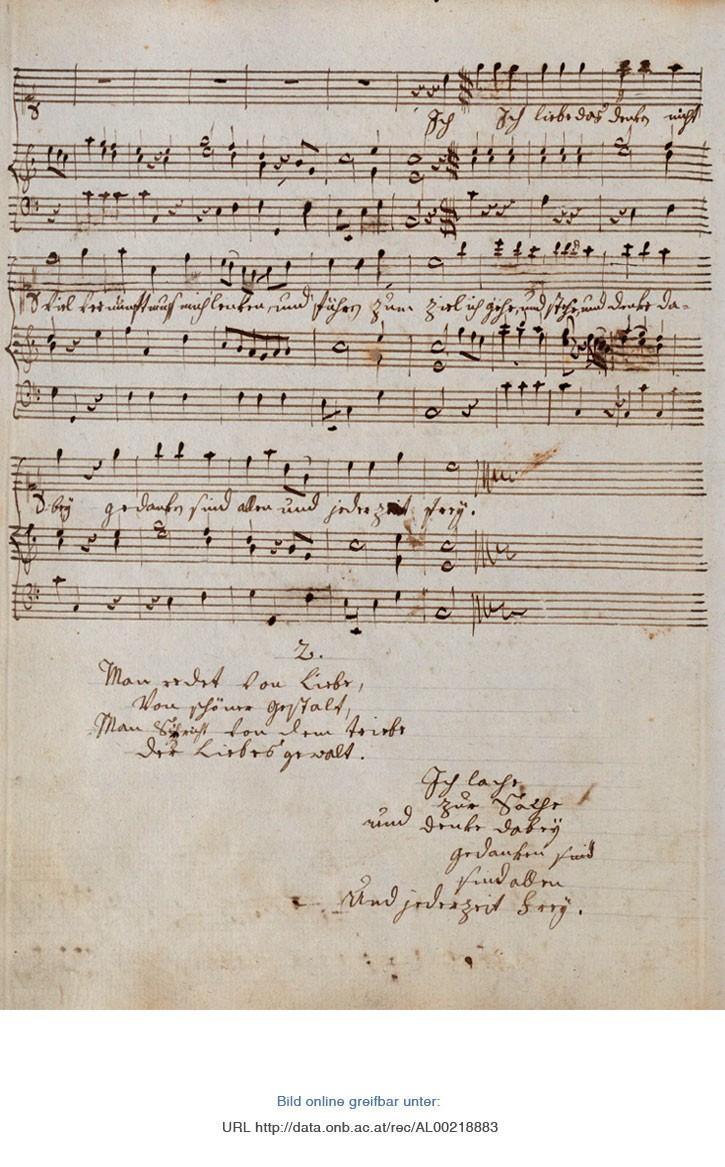 Ich Ich liebe das denken nicht
viel vernünftauf mich lenken, und führen zum ziel ich gehe, und stehe, und denke da-
bey gedanken sind allen und jederzeit frey.
2.
Man redet von Liebe,
Von schöner gestalt,
Man Spricht von dem triebe
Der Liebes gewalt.
Ich lache
zur Sache
und denke dabey
gedanken sind
sind allen
Und jederzeit frey.
Bild online greifbar unter:
URL http://data.onb.ac.at/rec/AL00218883